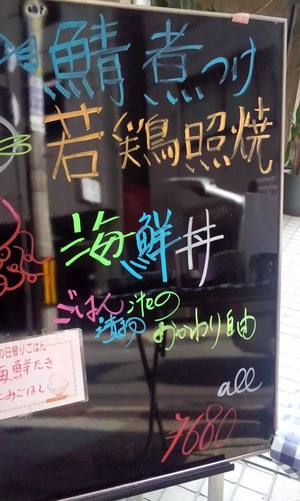 鯖煮つけ
若鶏照焼
海鮮丼
ごはん 汁もの
漬物 おかわり自由
all
¥680
の日替りごはん
海鮮たき
こみごはん